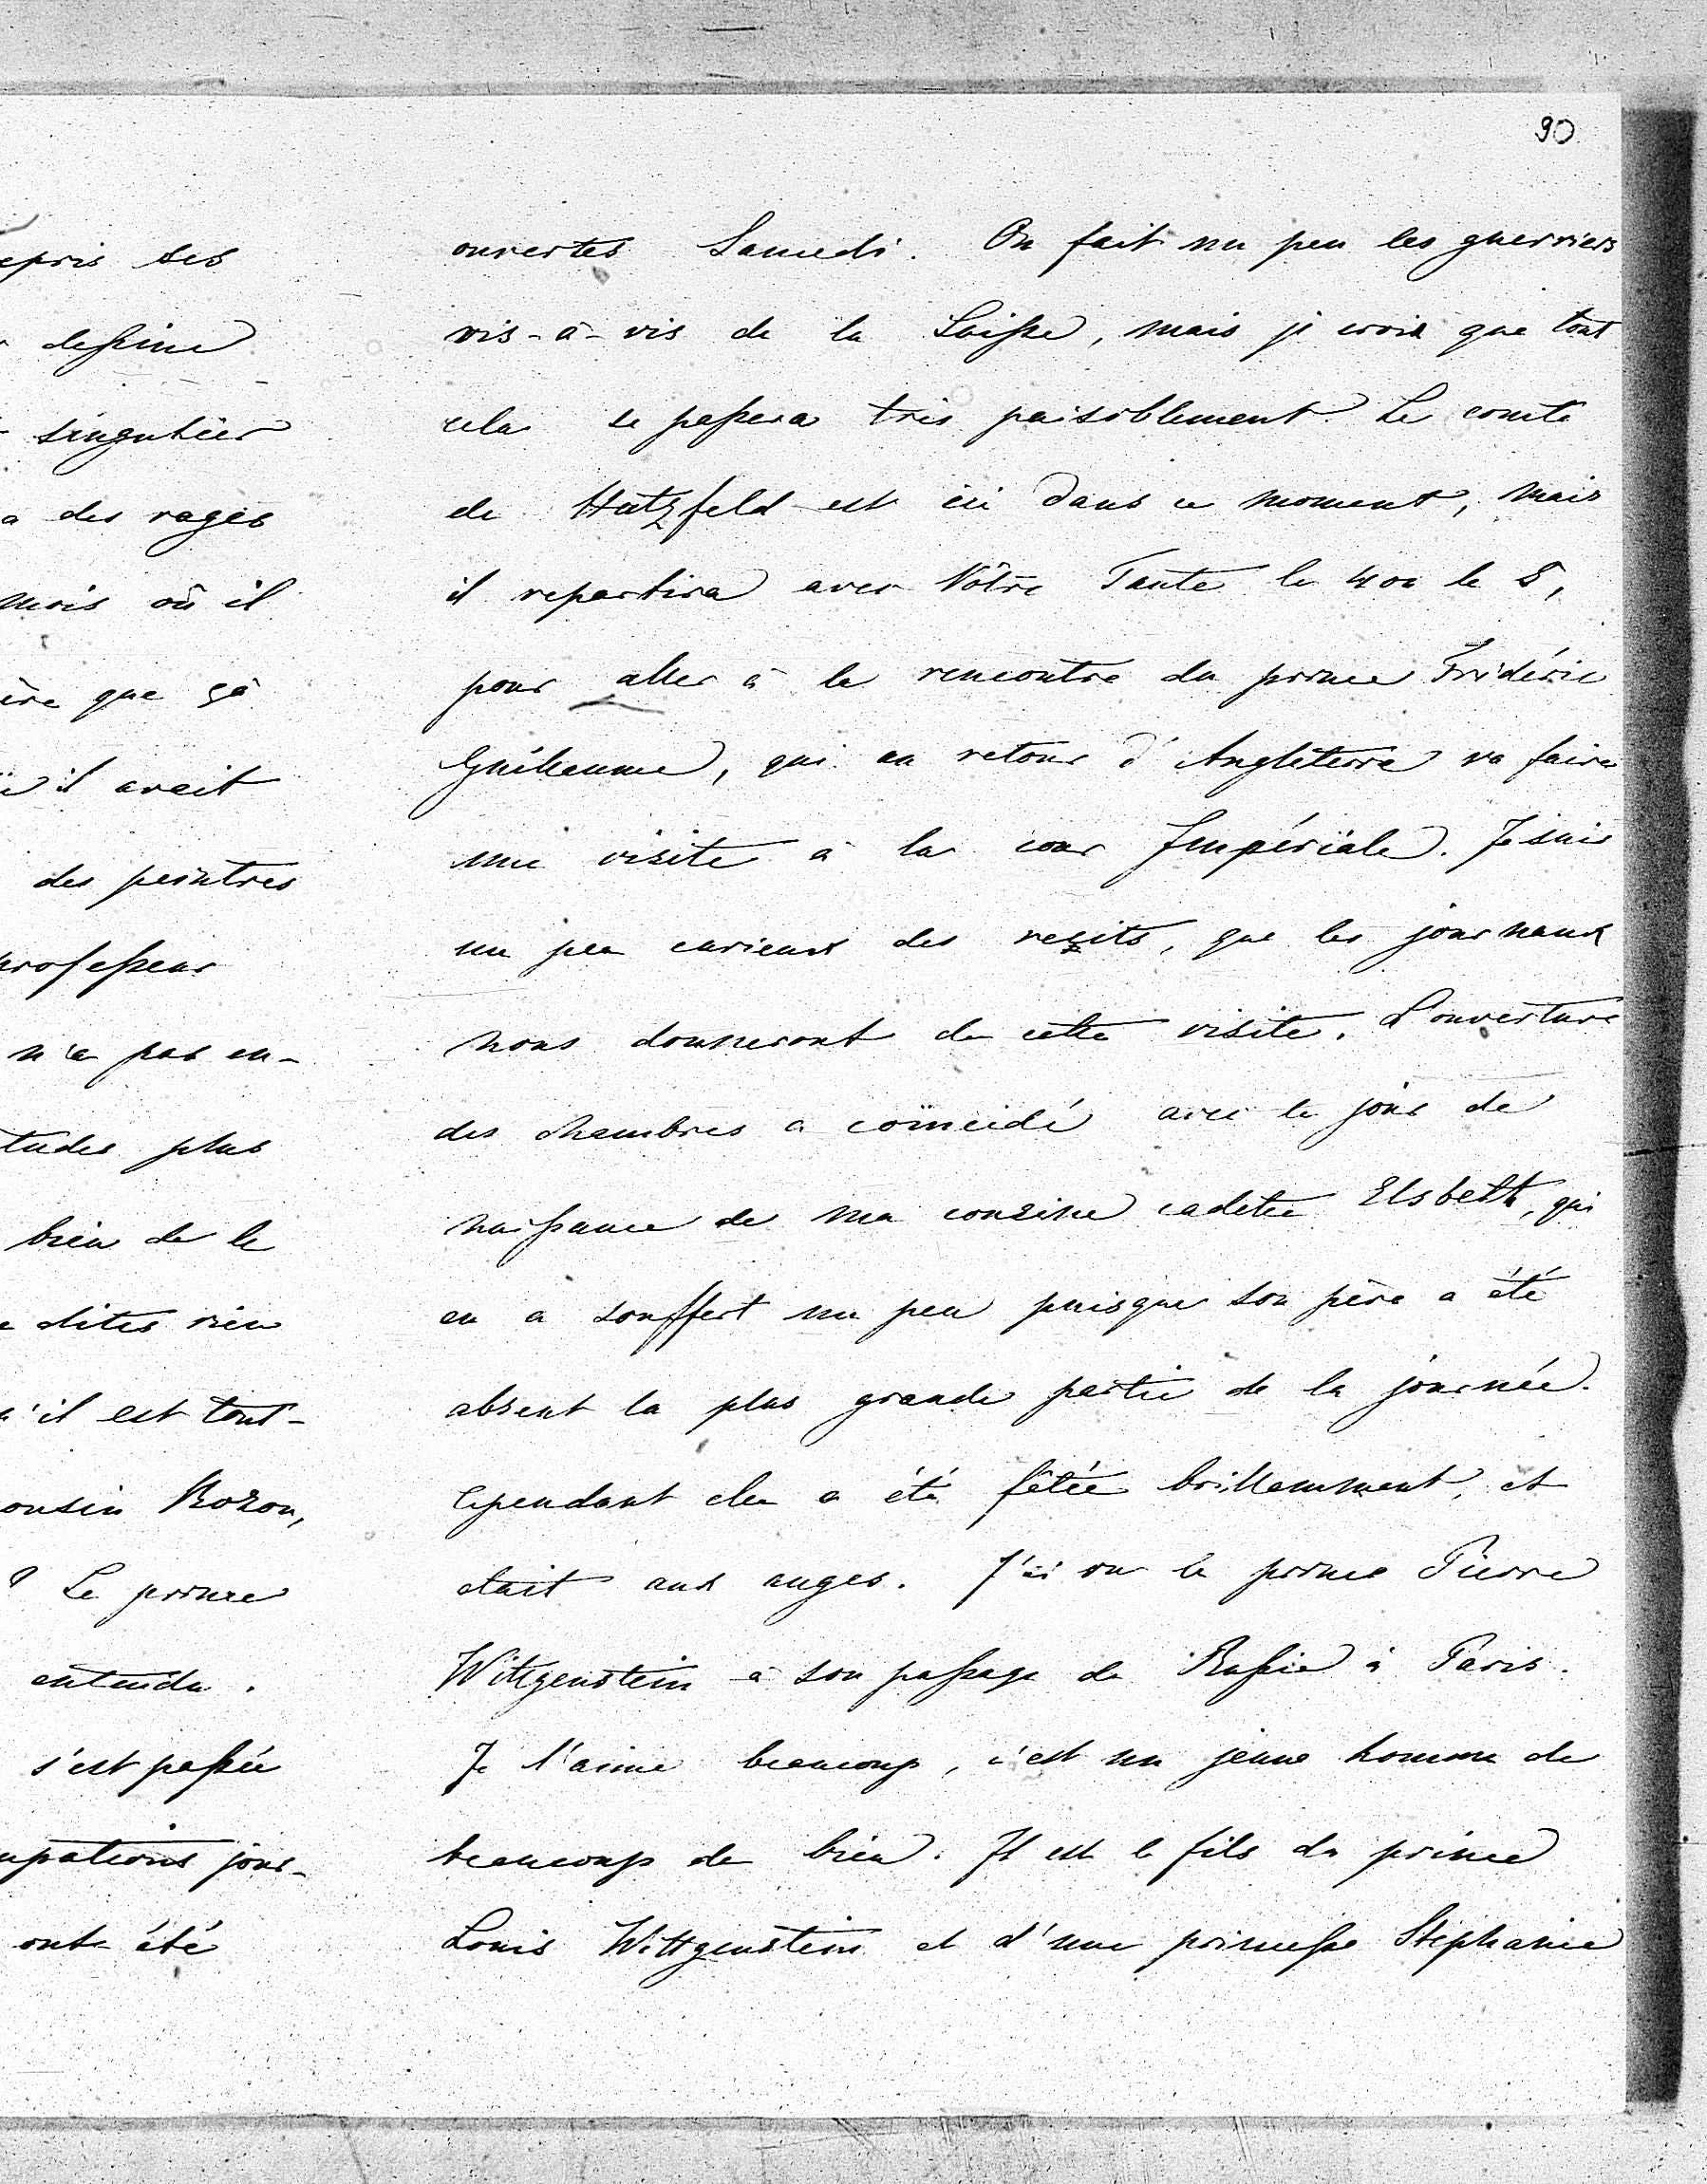 90
epris ses
dessine
singulier
a des rages
mois où il
ère que ça
il avait
des peintres
professeur
n'a pas en-
tudes plus
bien de le
dites rien
'il est tout-
ousin Bozon,
? Le prince
entendu.
s'est passée
upations jour-
ont été
ouvertes Samedi. On fait un peu les guerriers
vis-à-vis de la Suisse, mais je crois que tout
cela se passera très paisiblement. Le comte
de Hatzfeld est ici dans ce moment, mais
il repartira avec Vôtre Tante le 4 ou le 5,
pour aller à la rencontre du prince Frédéric
Guillaume, qui au retour d'Angleterre va faire
une visite à la cour Impériale. Je suis
un peu curieux des reçits, que les journaux
nous donneront de cette visite. L'ouverture
des chambres a coïncidé avec le jour de
naissance de ma cousine cadette Elsbeth, qui
en a souffert un peu puisque son père a été
absent la plus grande partie de la journée.
Cependant elle a été fêtée brillamment, et
était aux anges. J'ai vu le prince Pierre
Wittgenstein à son passage de Russie à Paris.
Je l'aime beaucoup, c'est un jeune homme de
beaucoup de bien. Il est le fils du prince
Louis Wittgenstein et d'une princesse Stephanie